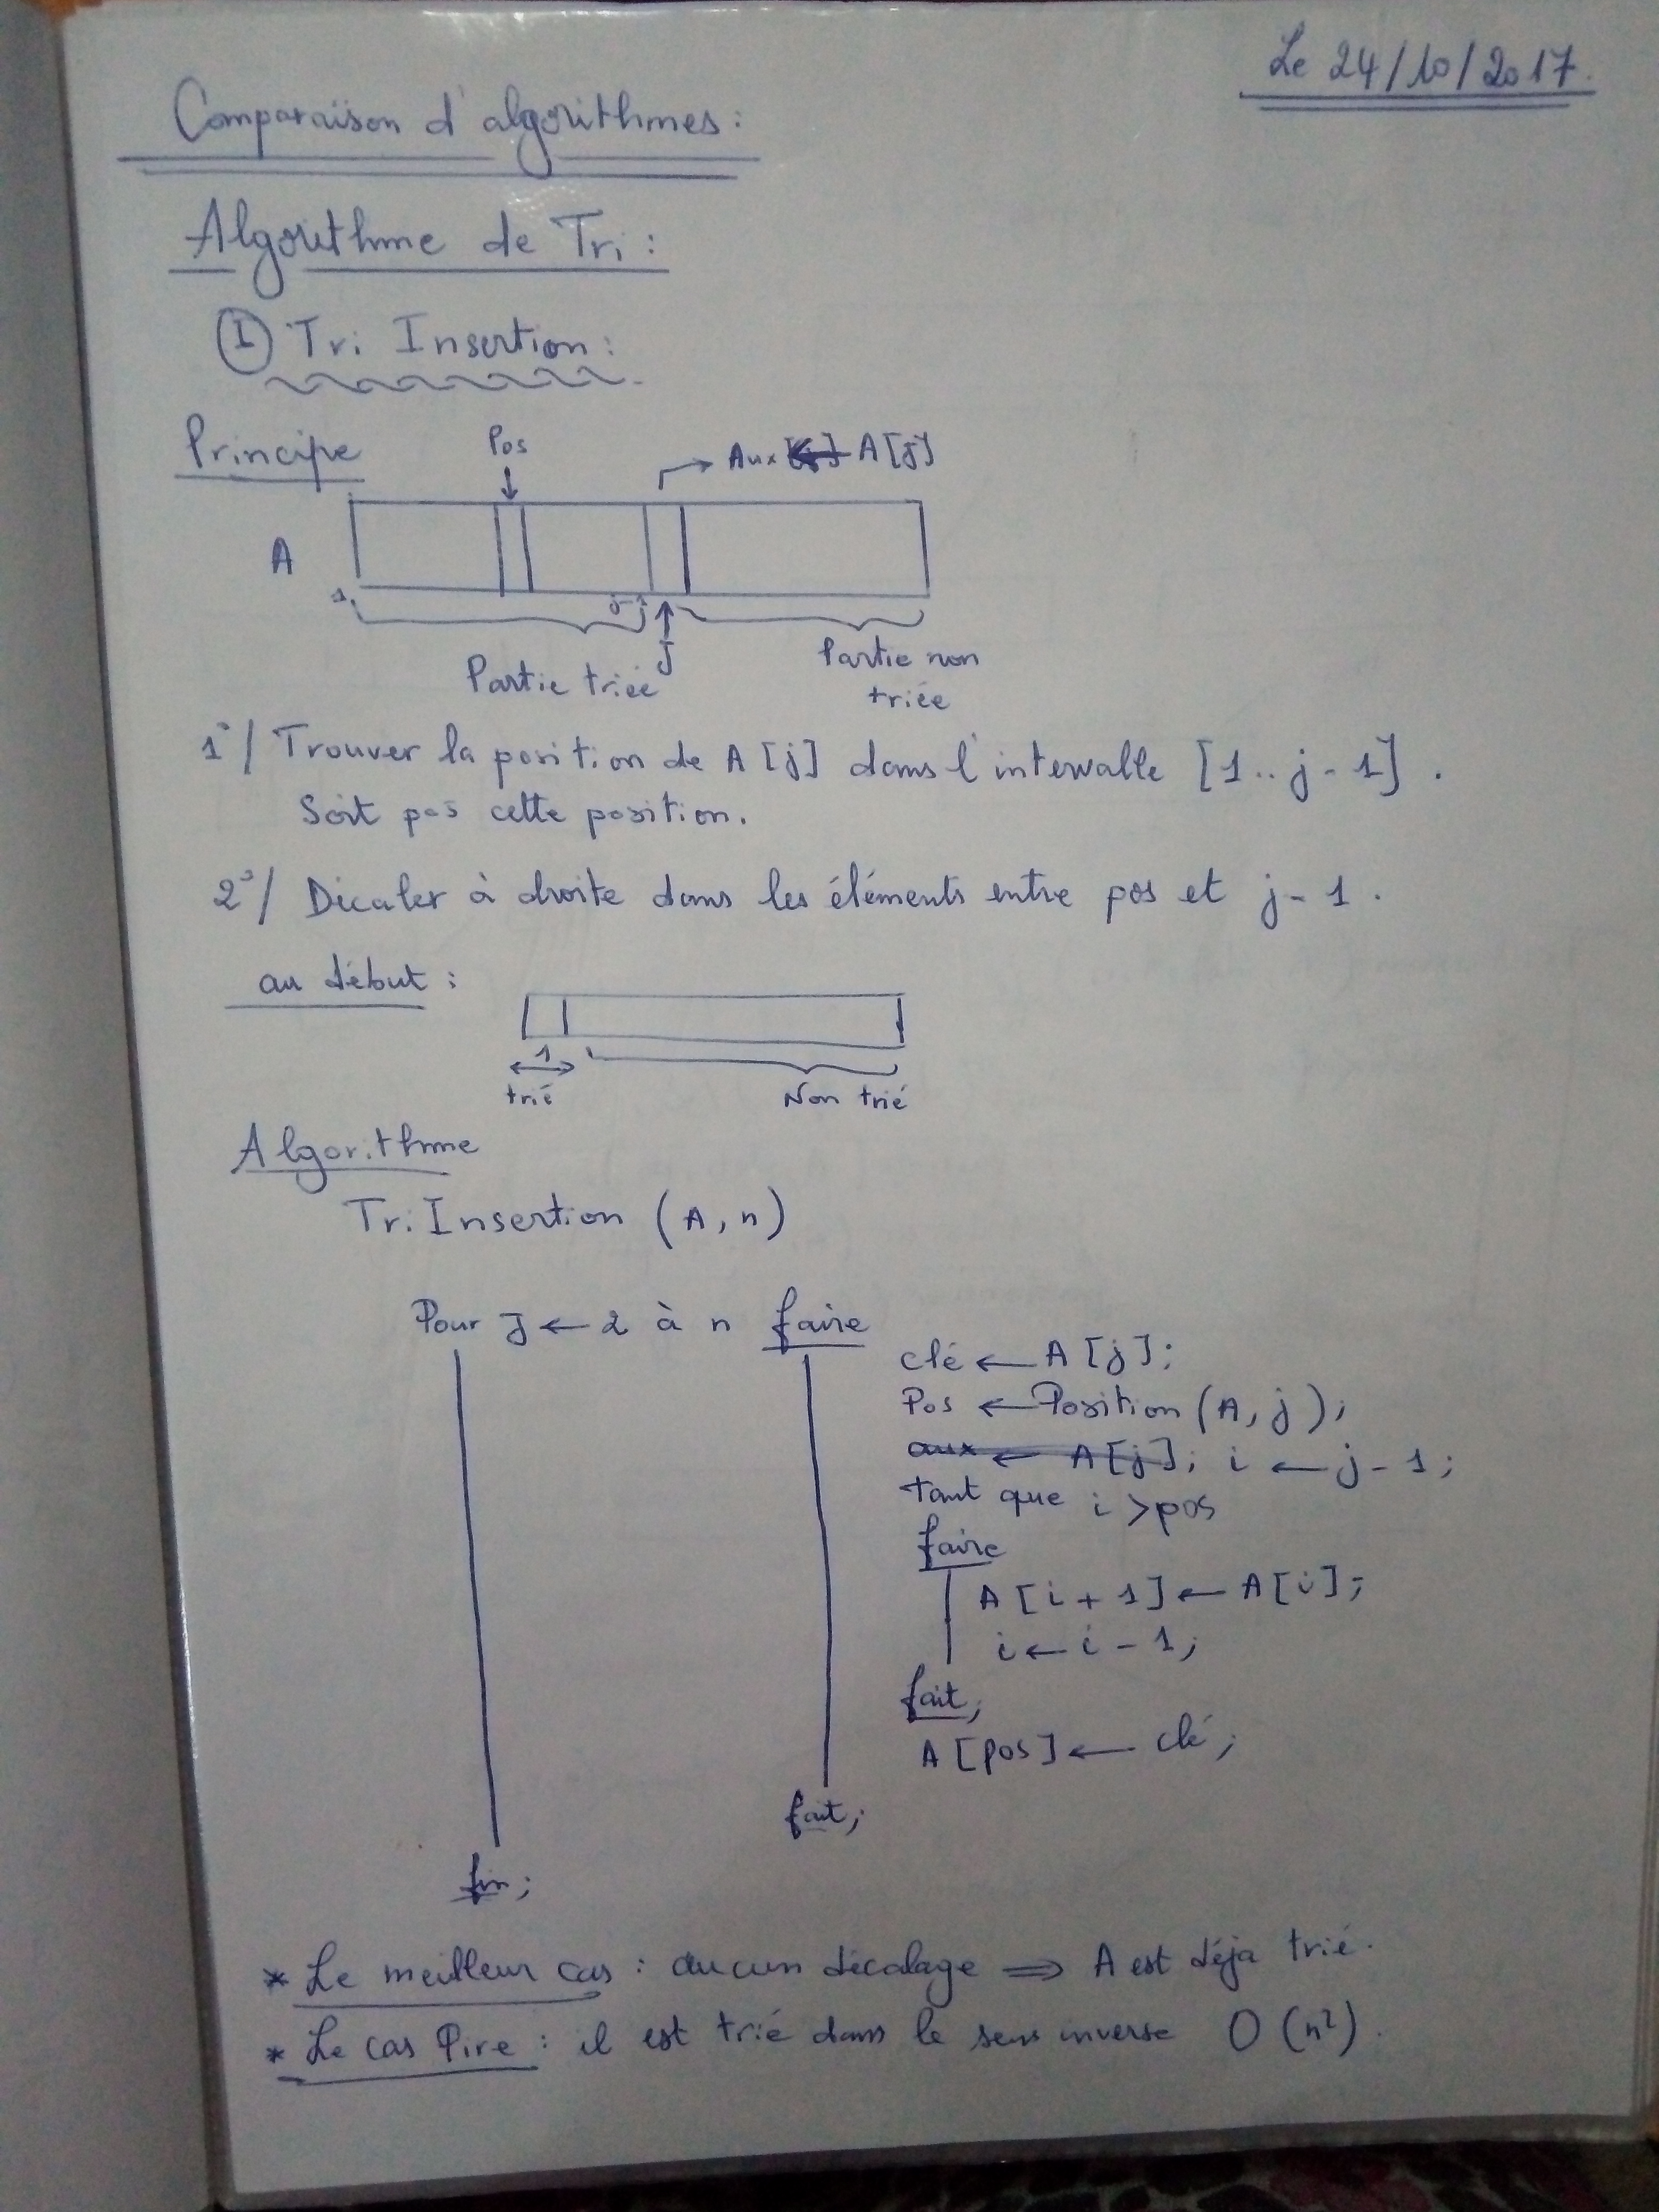 Le 24/10/2017.
Comparaïson d'algorithmes :
Algorithme de Tri :
I Tri Insertion :
Principe
Pos
Aux ← A[j]
A
1
j-1
J
Partie triée
Partie non
triée
1°/ Trouver la position de A[j] dans l'intervalle [1..j-1].
Soit pos cette position.
2°/ Décaler à droite dans les éléments entre pos et j-1.
au début :
1
trié
Non trié
Algorithme
Tri Insertion (A, n)
Pour J ← 2 à n faire
clé ← A[j];
Pos ← Position (A, j);
aux ← A[j]; i ← j-1;
tant que i > pos
faire
A[i+1] ← A[i];
i ← i-1;
fait;
A[pos] ← clé;
fait;
fin;
* Le meilleur cas : aucun décalage ⇒ A est déja trié.
* Le cas Pire : il est trié dans le sens inverse O(n²).